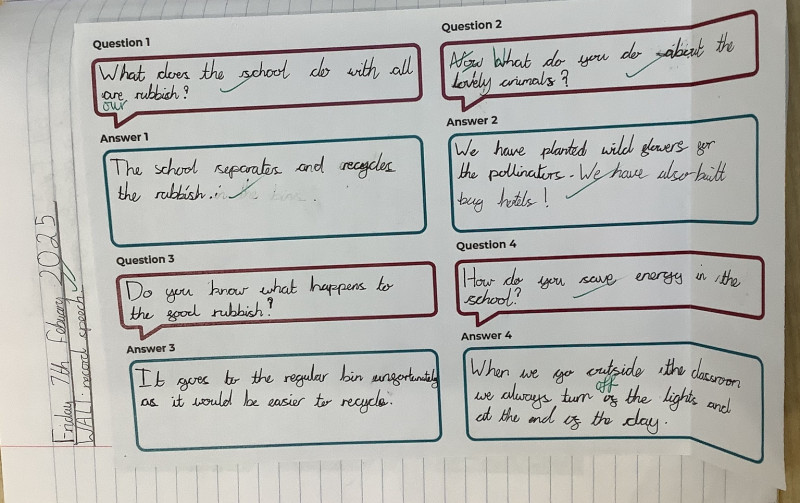 Friday 7th Febuary 2025
WALI: record speech.
Question 1
What does the school do with all
are rubbish?
our
Answer 1
The school seperates and recycles
the rubbish in the bins.
Question 2
Now What do you do about the
lovely animals?
Answer 2
We have planted wild flowers for
the pollinators. We have also built
bug hotels!
Question 3
Do you know what happens to
the food rubbish?
Answer 3
It goes to the regular bin unfortunately
as it would be easier to recycle.
Question 4
How do you save energy in the
school?
Answer 4
When we go outside the classroom
off
we always turn of the lights and
at the end of the day.